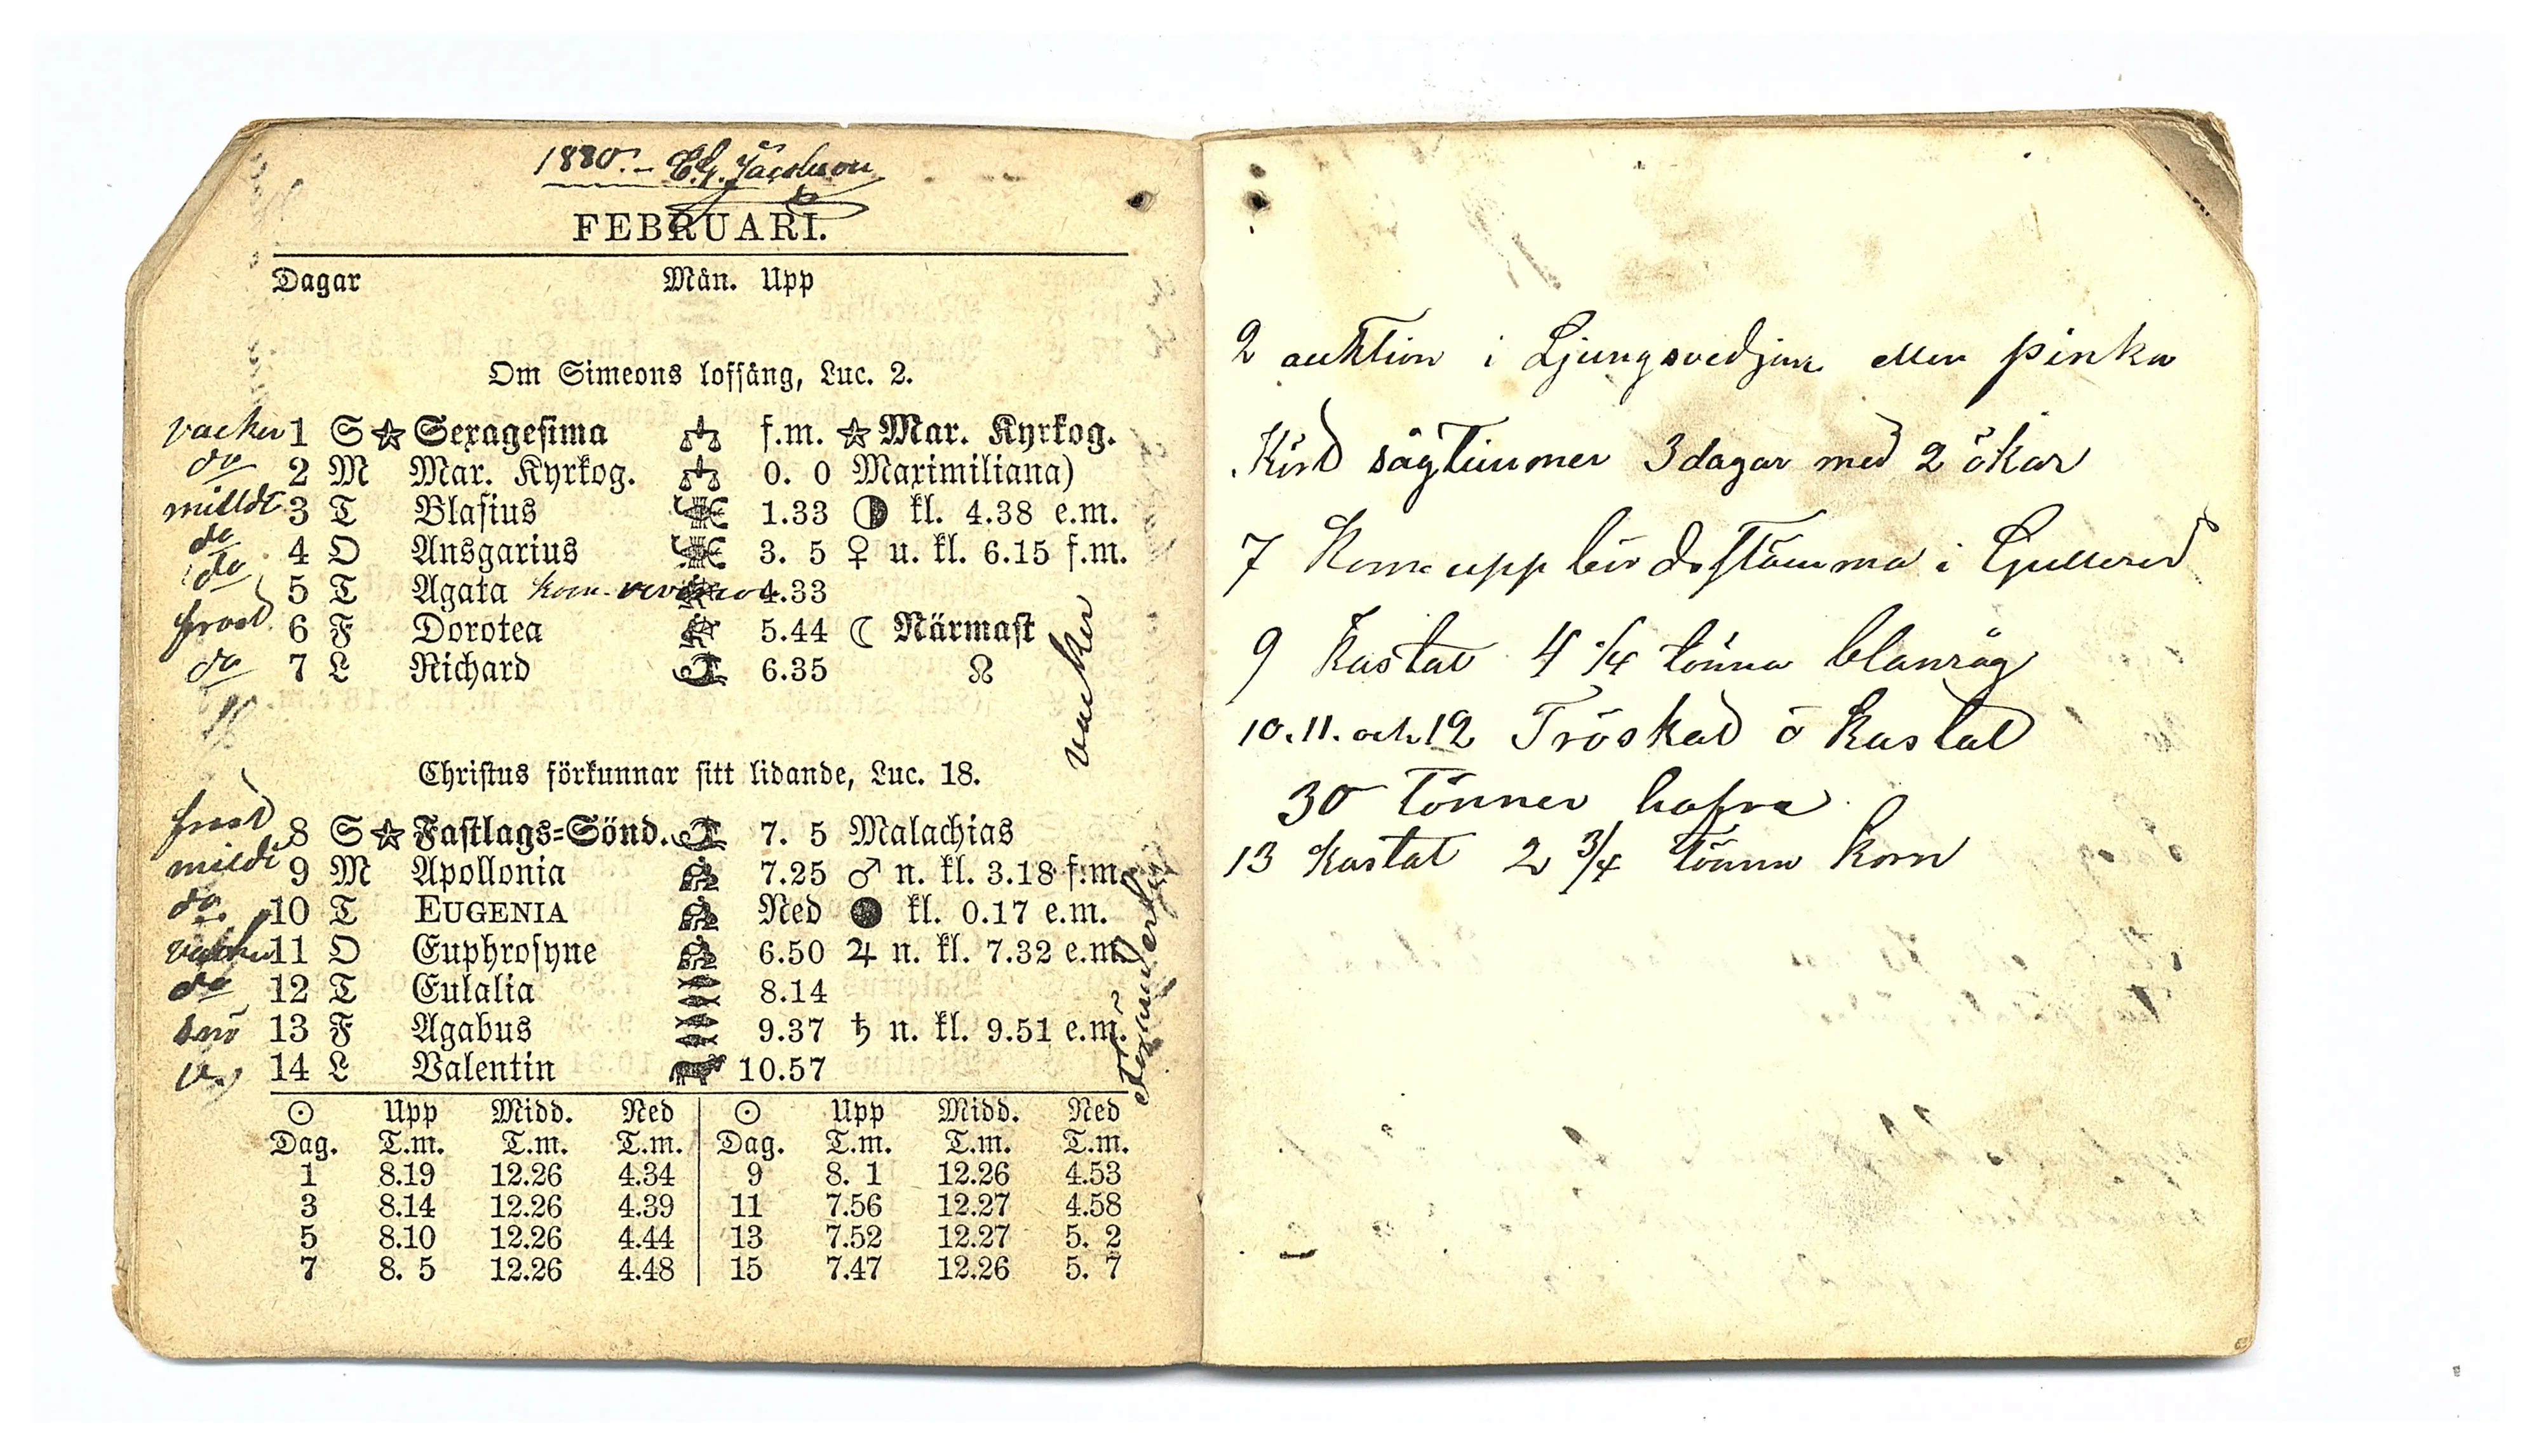 1880. - C.G. Jacobson
FEBRUARI.
Dagar Mån. Upp
Om Simeons loffång, Luc. 2.
vacker 1 S ☆ Sexagesima f.m. ☆ Mar. Kyrkog.
do 2 M Mar. Kyrkog. 0. 0 Maximiliana)
milldt 3 T Blasius 1.33 kl. 4.38 e.m.
do 4 O Ansgarius 3. 5 ♀ u. kl. 6.15 f.m.
do 5 T Agata kom 4.33
frost 6 F Dorotea 5.44 ☾ Närmast
do 7 L Richard 6.35 ☊
vacker
Christus förkunnar sitt lidande, Luc. 18.
frost 8 S ☆ Fastlags=Sönd. 7. 5 Malachias
mildt 9 M Apollonia 7.25 ♂ n. kl. 3.18 f.m.
do 10 T EUGENIA Ned ● kl. 0.17 e.m.
vacker 11 O Euphrosyne 6.50 ♃ n. kl. 7.32 e.m.
do 12 T Eulalia 8.14
snö 13 F Agabus 9.37 ♄ n. kl. 9.51 e.m.
14 L Valentin 10.57
☉ Upp Midd. Ned ☉ Upp Midd. Ned
Dag. T.m. T.m. T.m. Dag. T.m. T.m. T.m.
1 8.19 12.26 4.34 9 8. 1 12.26 4.53
3 8.14 12.26 4.39 11 7.56 12.27 4.58
5 8.10 12.26 4.44 13 7.52 12.27 5. 2
7 8. 5 12.26 4.48 15 7.47 12.26 5. 7
2 auktion i Ljungsvedjan eller pinka
Körd sågtimmer 3 dagar med 2 ökar
7 Kom uppbördsstämma i Gullered
9 Kastat 4 1/4 tönna blanråg
10. 11. och 12 Tröskad ö kastat
30 tönner hafra
13 kastat 2 3/4 tönna korn